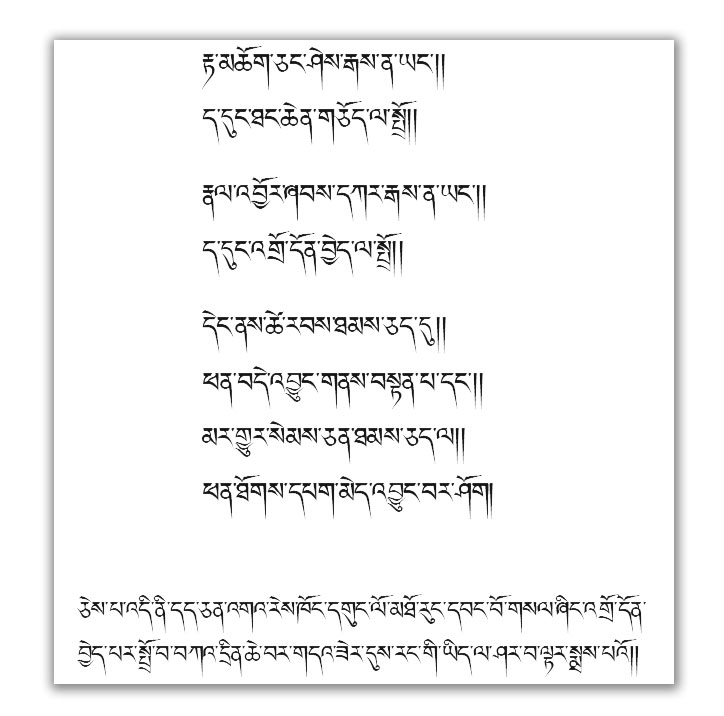 རྟ་མཆོག་ཅང་ཤེས་རྒས་ན་ཡང་།།
ད་དུང་ཐང་ཆེན་གཅོད་ལ་སྤྲོ།།
རྣལ་འབྱོར་ཞབས་དཀར་རྒས་ན་ཡང་།།
ད་དུང་འགྲོ་དོན་བྱེད་ལ་སྤྲོ།།
དེང་ནས་ཚེ་རབས་ཐམས་ཅད་དུ།།
ཕན་བདེའི་འབྱུང་གནས་བསྟན་པ་དང་།།
མར་གྱུར་སེམས་ཅན་ཐམས་ཅད་ལ།།
ཕན་ཐོགས་དཔག་མེད་འབྱུང་བར་ཤོག།
ཅེས་པ་འདི་ནི་དད་ཅན་འགའ་རེས་ཁོང་དགུང་ལོ་མཐོ་རུང་དབང་པོ་གསལ་ཞིང་འགྲོ་དོན་
བྱེད་པར་སྤྲོ་བ་བཀའ་དྲིན་ཆེ་བར་གདའ་ཟེར་དུས་རང་གི་ཡིད་ལ་ཤར་བ་ལྟར་སྨྲས་པའོ།།